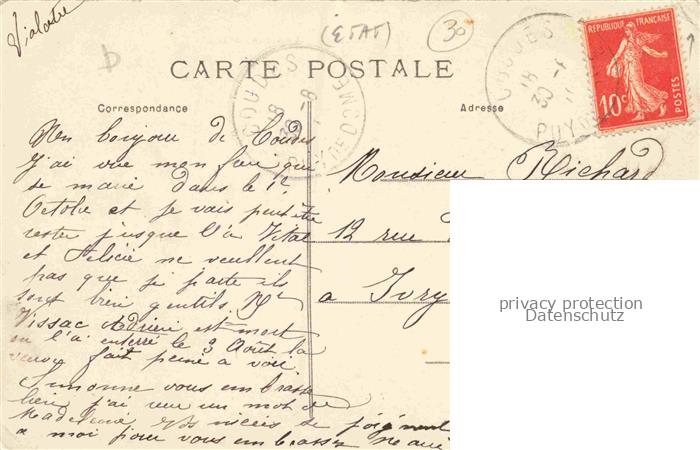 Violaste
(ETAT)
30
CARTE POSTALE
Correspondance
Adresse
REPUBLIQUE FRANÇAISE
10c
POSTES
COUDES
PUY-DE-DOME
Un bonjour de Coudes
J'ai vue mon frere qui
se marie dans le 1er
Octobre et je vais peut être
rester jusque là Vital
et Felicie ne veullent
pas que je parte ils
sont bien gentils. Mr
Vissac Adrien est mort
on l'a enterré le 3 Août la
veuve fait peine a voir.
Simonne vous embrasse
bien j'ai reue un mot de
Madeleine Vos nieces se joignent
a moi pour vous embrasser
Monsieur Richard
12 rue
a Ivry
privacy protection
Datenschutz